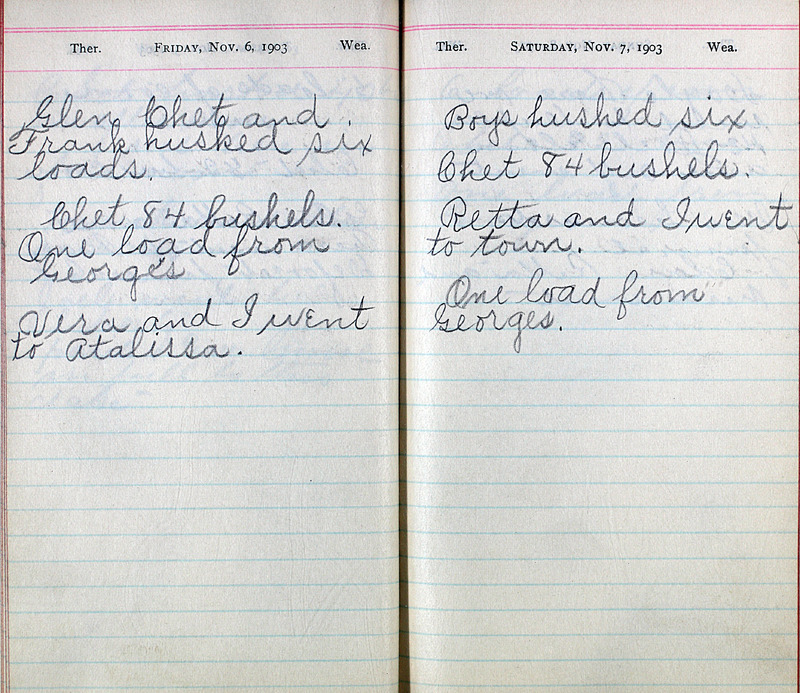 Ther. Friday, Nov. 6, 1903 Wea.
Glen Chet and
Frank husked six
loads.
Chet 84 bushels.
One load from
George's
Vera and I went
to Atalissa.
Ther. Saturday, Nov. 7, 1903 Wea.
Boys husked six
Chet 84 bushels.
Retta and I went
to town.
One load from
Georges.